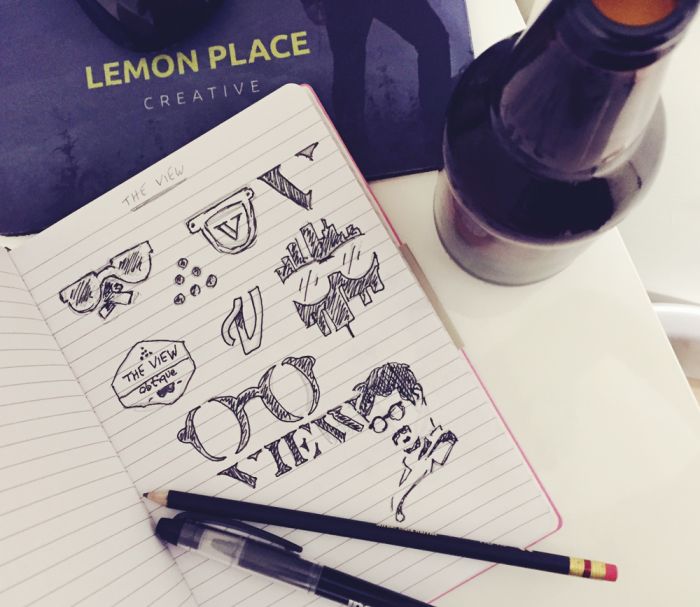 LEMON PLACE
CREATIVE
THE VIEW
V
V
V
THE VIEW
oblique
VIEW